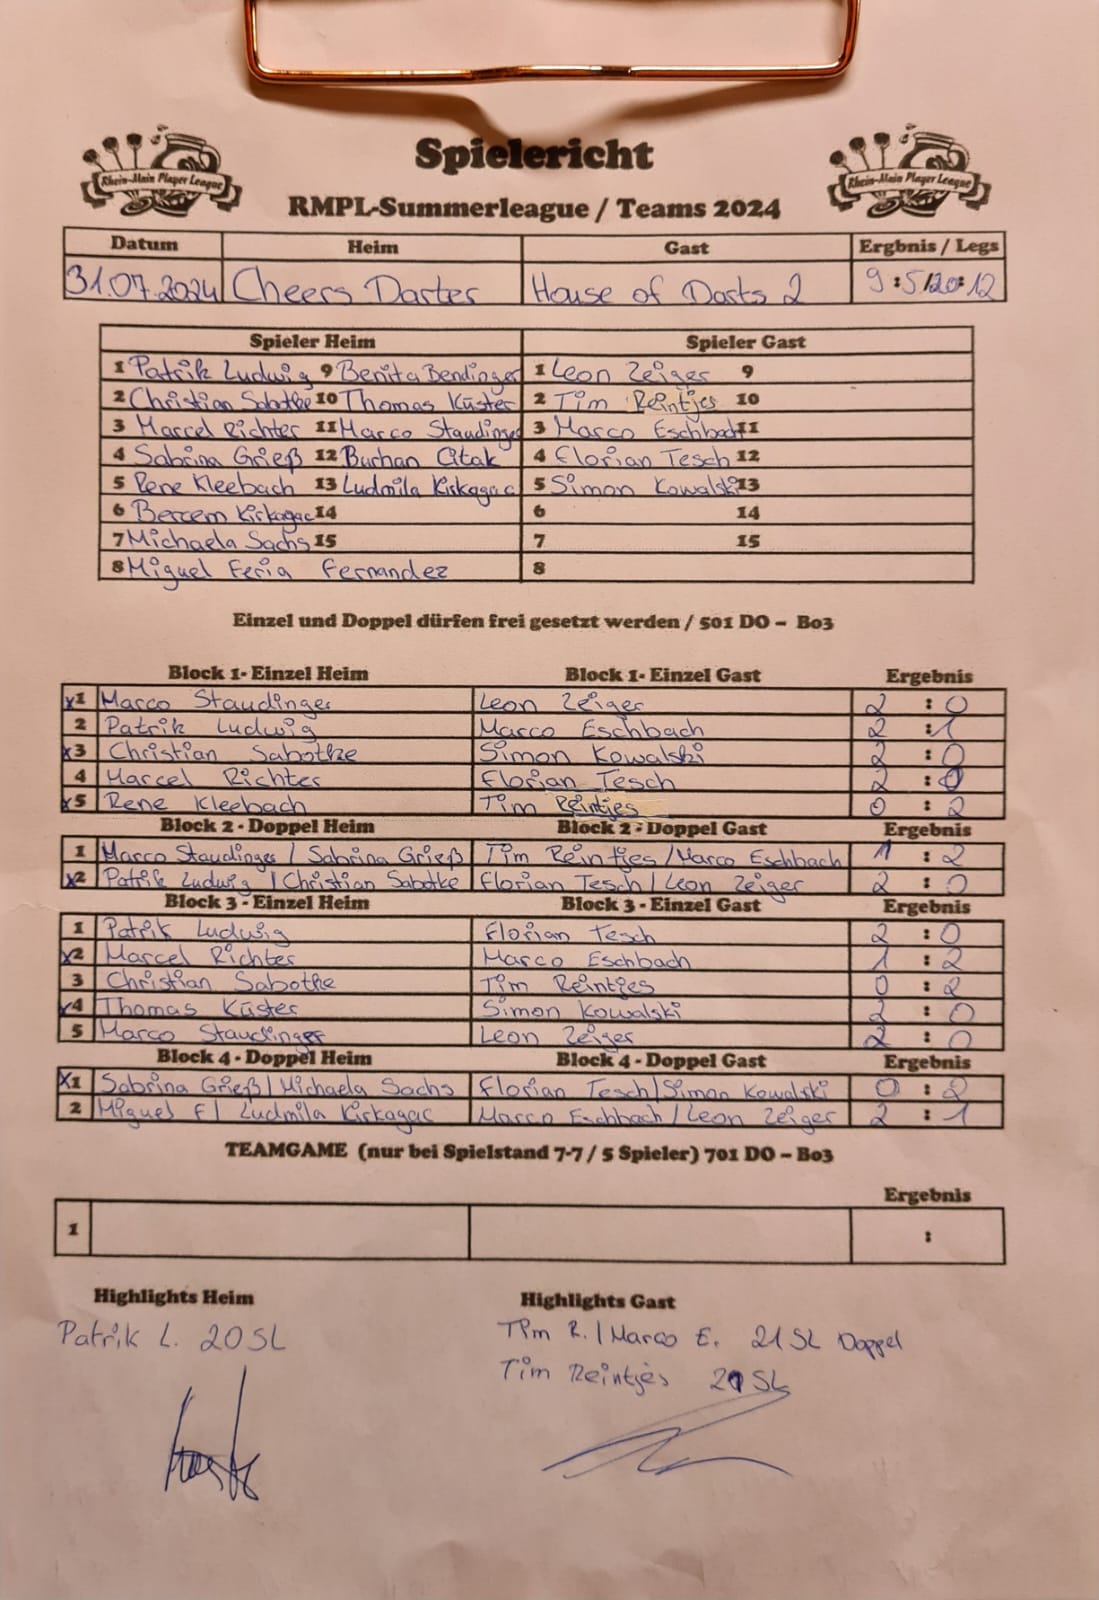 Rhein-Main Player League
Rhein-Main Player League
Spielericht
RMPL-Summerleague / Teams 2024
Datum Heim Gast Ergbnis / Legs
31.07.2024 Cheers Darter House of Darts 2 9:5/20:12
Spieler Heim Spieler Gast
1 Patrik Ludwig 9 Benita Bendinger 1 Leon Zeiger 9
2 Christian Sabotke 10 Thomas Küster 2 Tim Reintjes 10
3 Marcel Richter 11 Marco Staudinger 3 Marco Eschbach 11
4 Sabrina Grieß 12 Burhan Citak 4 Florian Tesch 12
5 Rene Kleebach 13 Ludmila Kirkagac 5 Simon Kowalski 13
6 Bercem Kirkagac 14 6 14
7 Michaela Sachs 15 7 15
8 Miguel Feria Fernandez 8
Einzel und Doppel dürfen frei gesetzt werden / 501 DO – Bo3
Block 1- Einzel Heim Block 1- Einzel Gast Ergebnis
x1 Marco Staudinger Leon Zeiger 2 : 0
2 Patrik Ludwig Marco Eschbach 2 : 1
x3 Christian Sabotke Simon Kowalski 2 : 0
4 Marcel Richter Florian Tesch 2 : 0
x5 Rene Kleebach Tim Reintjes 0 : 2
Block 2 - Doppel Heim Block 2 - Doppel Gast Ergebnis
1 Marco Staudinger / Sabrina Grieß Tim Reintjes / Marco Eschbach 1 : 2
x2 Patrik Ludwig / Christian Sabotke Florian Tesch / Leon Zeiger 2 : 0
Block 3 - Einzel Heim Block 3 - Einzel Gast Ergebnis
1 Patrik Ludwig Florian Tesch 2 : 0
x2 Marcel Richter Marco Eschbach 1 : 2
3 Christian Sabothe Tim Reintjes 0 : 2
x4 Thomas Küster Simon Kowalski 2 : 0
5 Marco Staudinger Leon Zeiger 2 : 0
Block 4 - Doppel Heim Block 4 - Doppel Gast Ergebnis
x1 Sabrina Grieß / Michaela Sachs Florian Tesch / Simon Kowalski 0 : 2
2 Miguel F / Ludmila Kirkagac Marco Eschbach / Leon Zeiger 2 : 1
TEAMGAME (nur bei Spielstand 7-7 / 5 Spieler) 701 DO – Bo3
Ergebnis
1 :
Highlights Heim Highlights Gast
Patrik L. 20SL Tim R. / Marco E. 21 SL Doppel
Tim Reintjes 20 SL